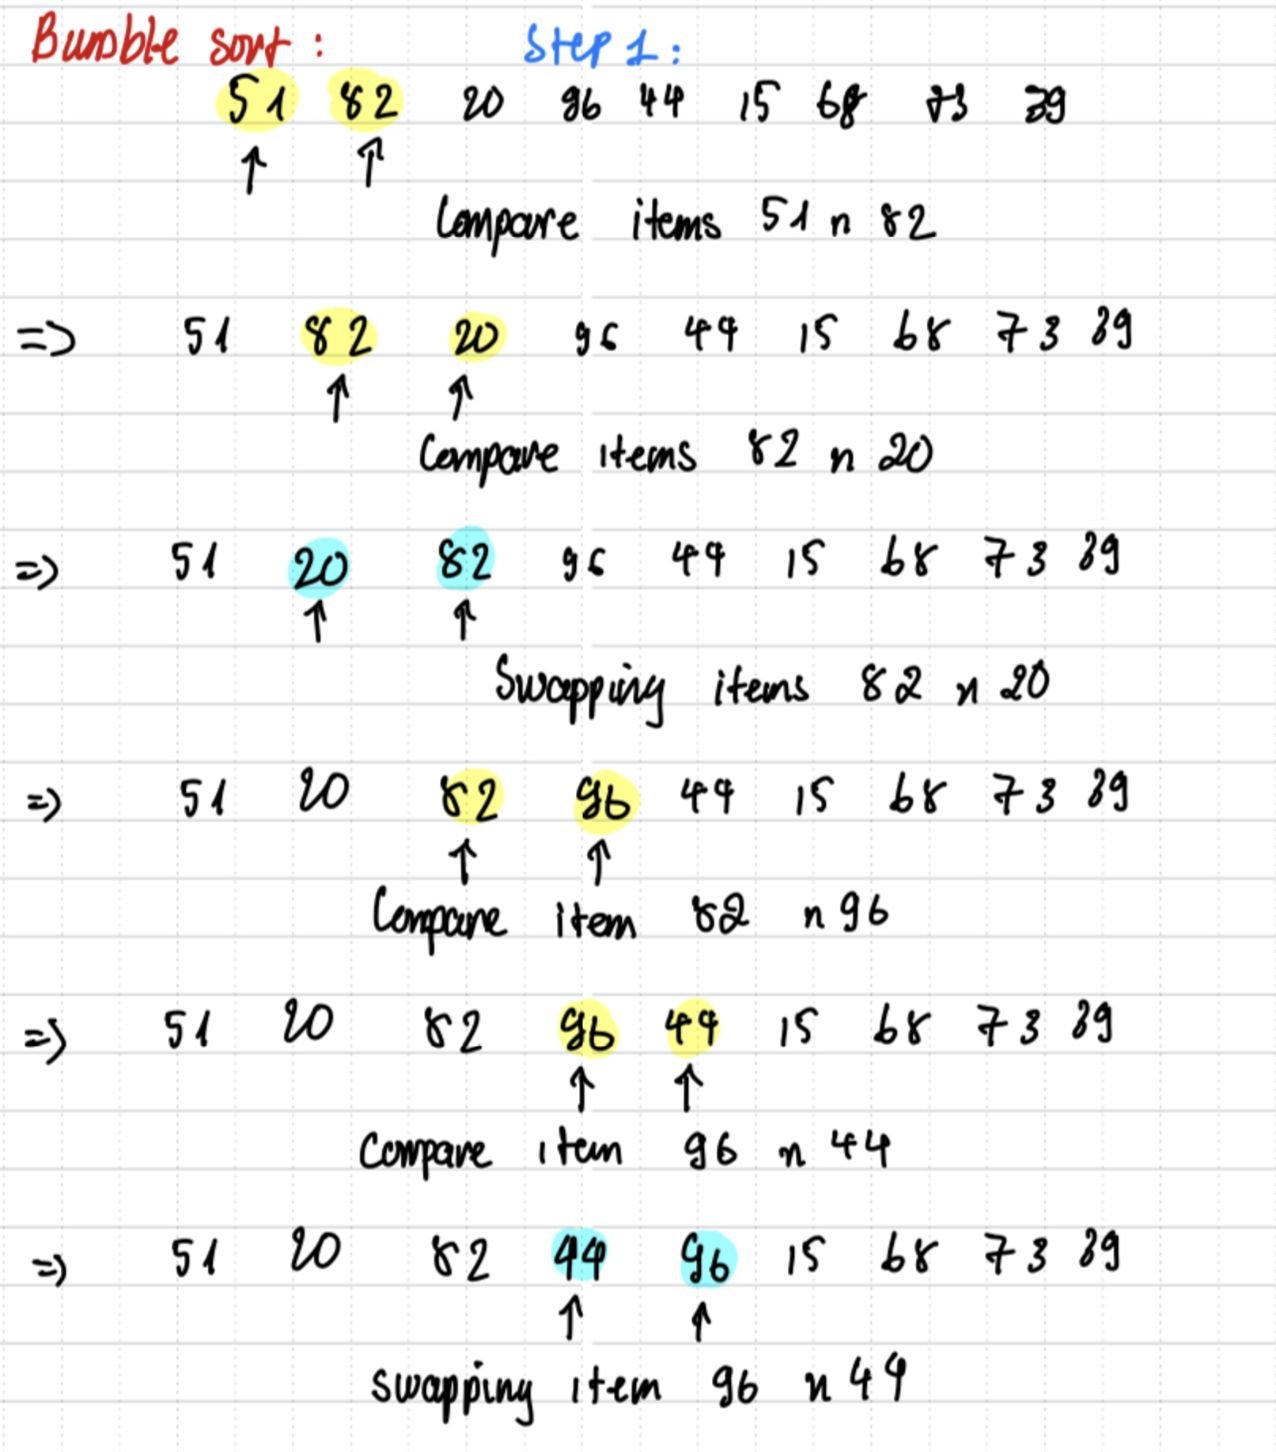 Bubble sort : Step 1 :
51 82 20 96 44 15 68 73 39
↑ ↑
Compare items 51 n 82
=> 51 82 20 96 44 15 68 73 39
↑ ↑
Compare items 82 n 20
=> 51 20 82 96 44 15 68 73 39
↑ ↑
Swapping items 82 n 20
=> 51 20 82 96 44 15 68 73 39
↑ ↑
Compare item 82 n 96
=> 51 20 82 96 44 15 68 73 39
↑ ↑
Compare item 96 n 44
=> 51 20 82 44 96 15 68 73 39
↑ ↑
swapping item 96 n 44